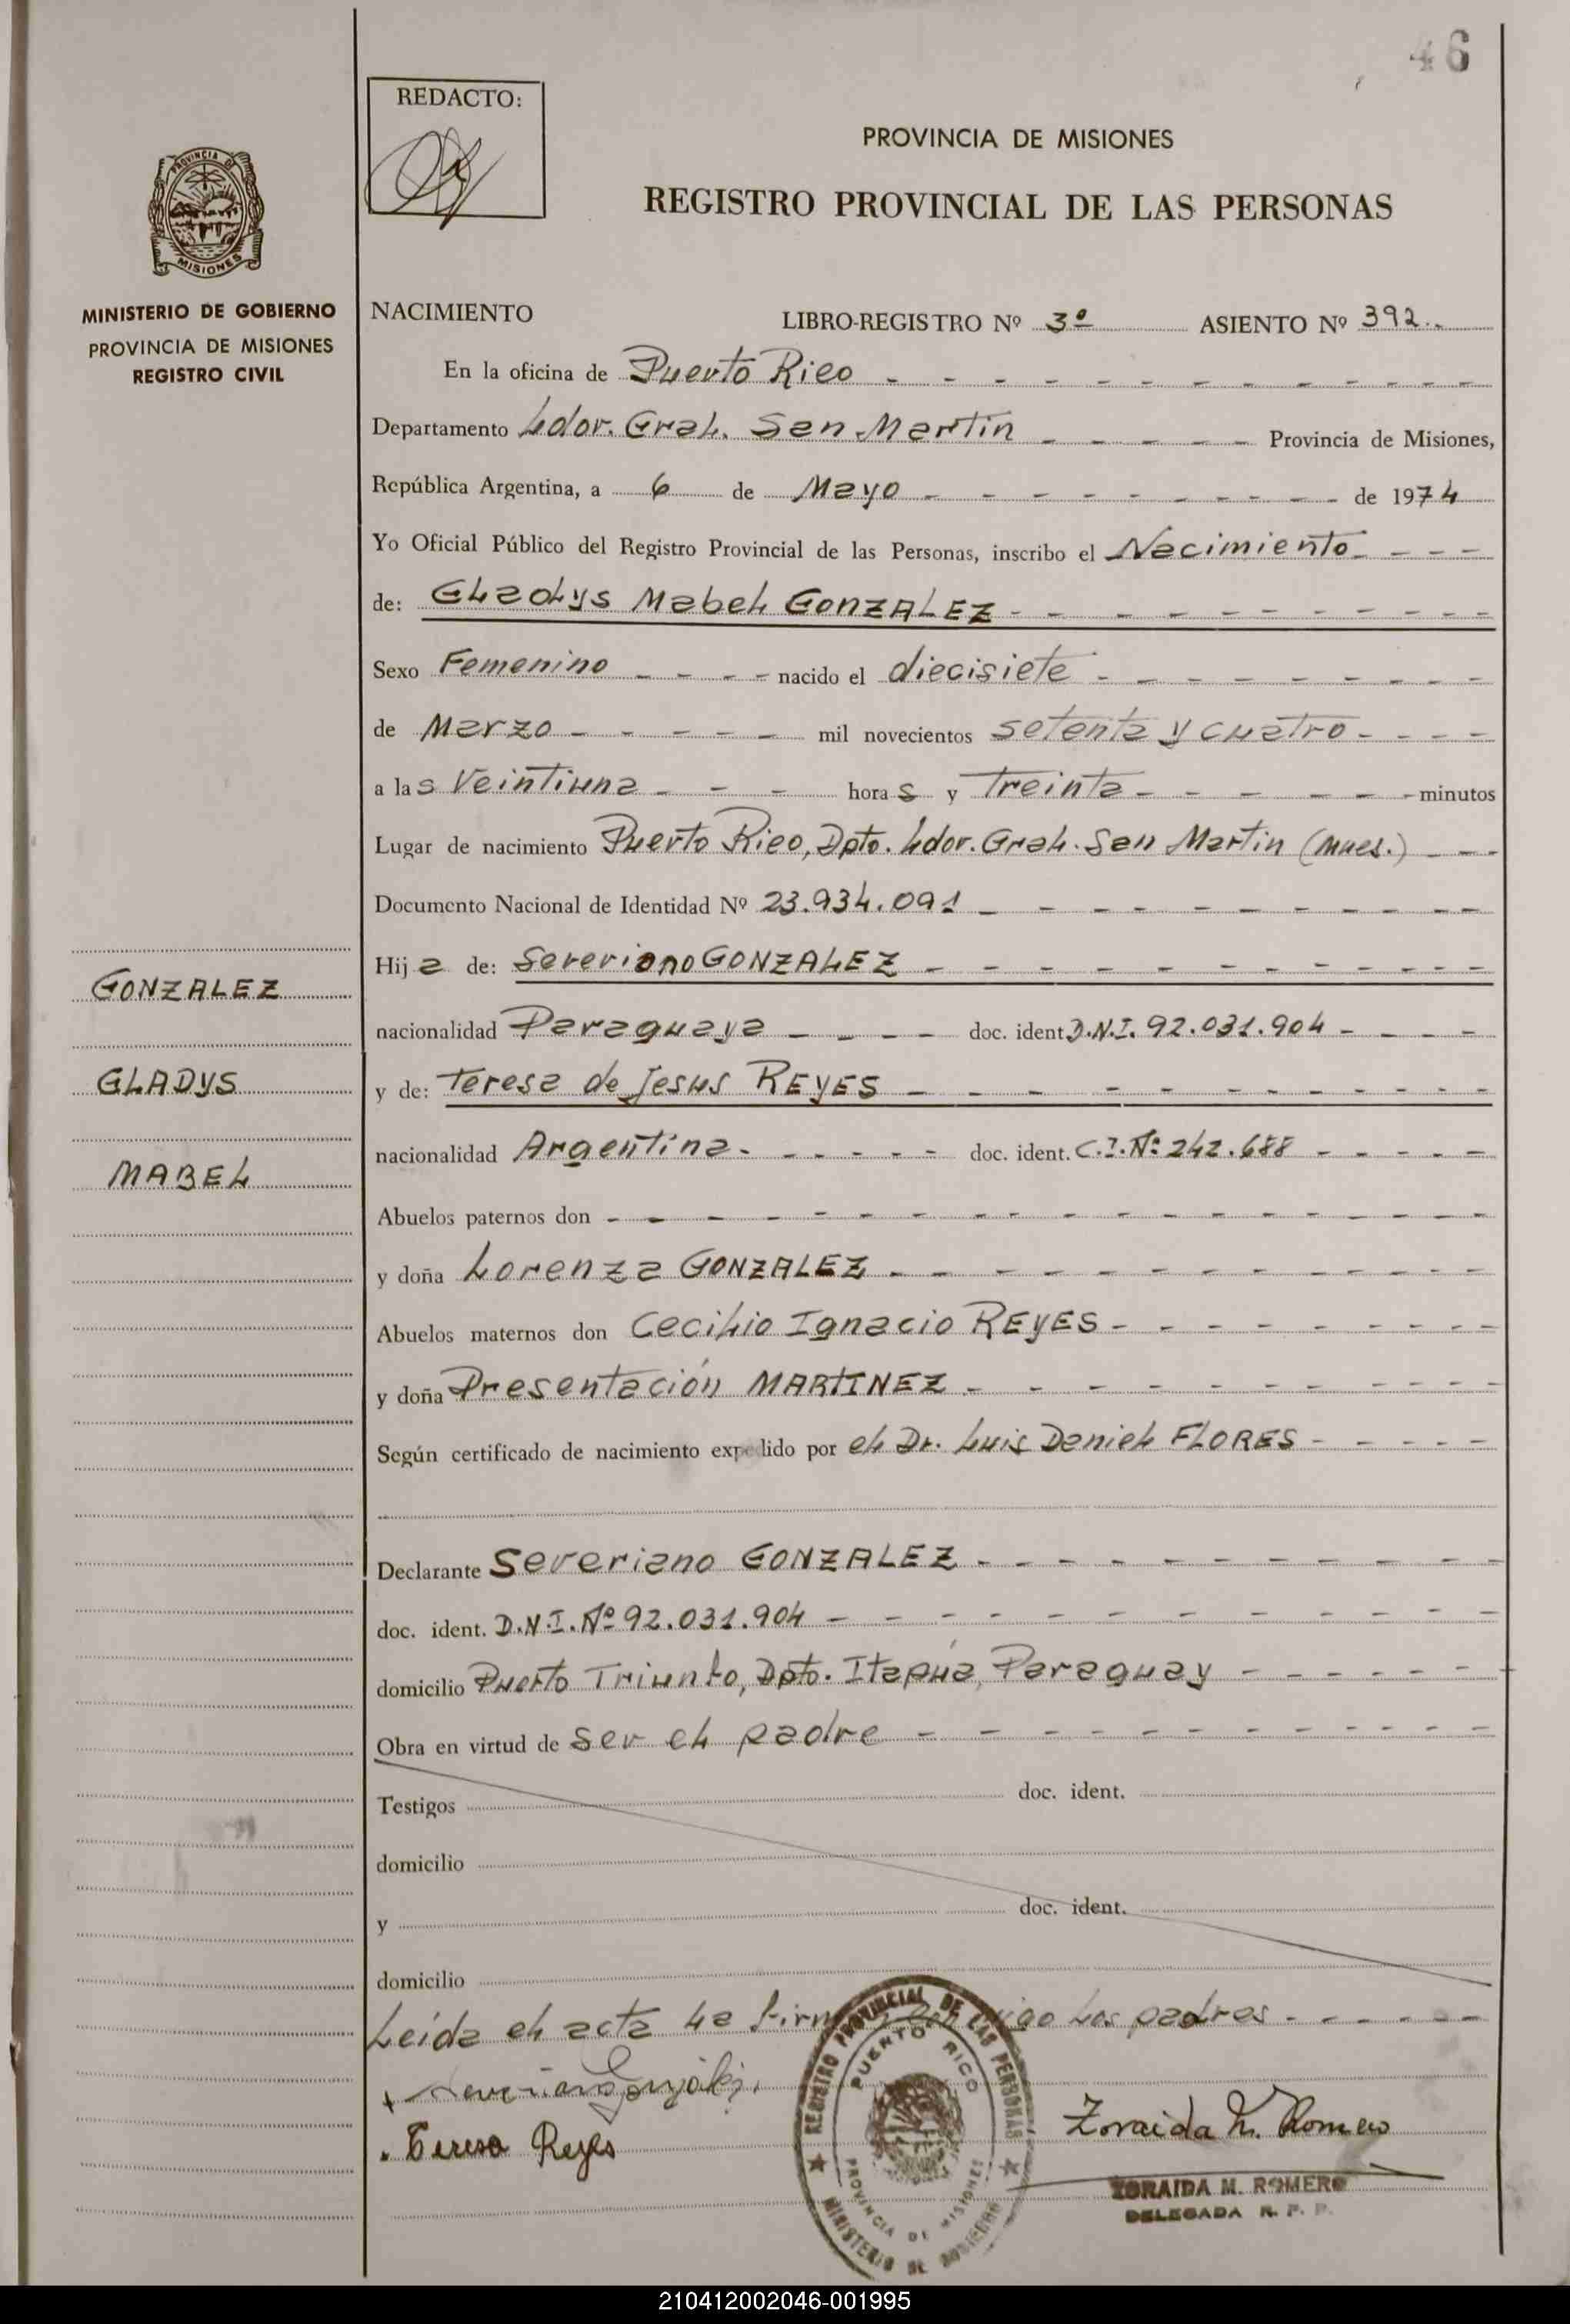 46
REDACTO:
PROVINCIA DE MISIONES
REGISTRO PROVINCIAL DE LAS PERSONAS
PROVINCIA DE
MISIONES
MINISTERIO DE GOBIERNO
PROVINCIA DE MISIONES
REGISTRO CIVIL
NACIMIENTO LIBRO-REGISTRO Nº 3º ASIENTO Nº 392.
En la oficina de Puerto Rico - - - - - - - - - - - -
Departamento Ldor. Gral. San Martín - - - - - Provincia de Misiones,
República Argentina, a 6 de Mayo - - - - - - - - - de 1974
Yo Oficial Público del Registro Provincial de las Personas, inscribo el Nacimiento - - -
de: Gladys Mabel GONZALEZ - - - - - - - - - -
Sexo Femenino - - - - nacido el diecisiete - - - - - - - -
de Marzo - - - - - mil novecientos setenta y cuatro - - - -
a las Veintiuna - - - horas y Treinta - - - - - - minutos
Lugar de nacimiento Puerto Rico, Dpto. Ldor. Gral. San Martín (Mnes.) - - -
Documento Nacional de Identidad Nº 23.934.091 - - - - - - - - - -
Hija de: Severiano GONZALEZ - - - - - - - - - - -
nacionalidad Paraguaya - - - - doc. ident. D.N.I. 92.031.904 - - - -
y de: Teresa de Jesus REYES - - - - - - - - - - -
nacionalidad Argentina - - - - - - doc. ident. C.I. Nº 242.688 - - - - -
Abuelos paternos don - - - - - - - - - - - - - - - - -
y doña Lorenza GONZALEZ - - - - - - - - - - - -
Abuelos maternos don Cecilio Ignacio REYES - - - - - - - - -
y doña Presentación MARTINEZ - - - - - - - - - - -
Según certificado de nacimiento expedido por el Dr. Luis Daniel FLORES - - - - -
GONZALEZ
GLADYS
MABEL
Declarante Severiano GONZALEZ - - - - - - - - - - -
doc. ident. D.N.I. Nº 92.031.904 - - - - - - - - - - - -
domicilio Puerto Triunfo, Dpto. Itapúa, Paraguay - - - - - -
Obra en virtud de ser el padre - - - - - - - - - - - -
Testigos doc. ident.
domicilio
y doc. ident.
domicilio
Leída el acta la firman conmigo los padres - - - - - -
Teresa Reyes
Zoraida M. Romero
ZORAIDA M. ROMERO
DELEGADA R. P. P.
REGISTRO PROVINCIAL DE LAS PERSONAS
PUERTO RICO
PROVINCIA DE MISIONES
MINISTERIO DE GOBIERNO
210412002046-001995